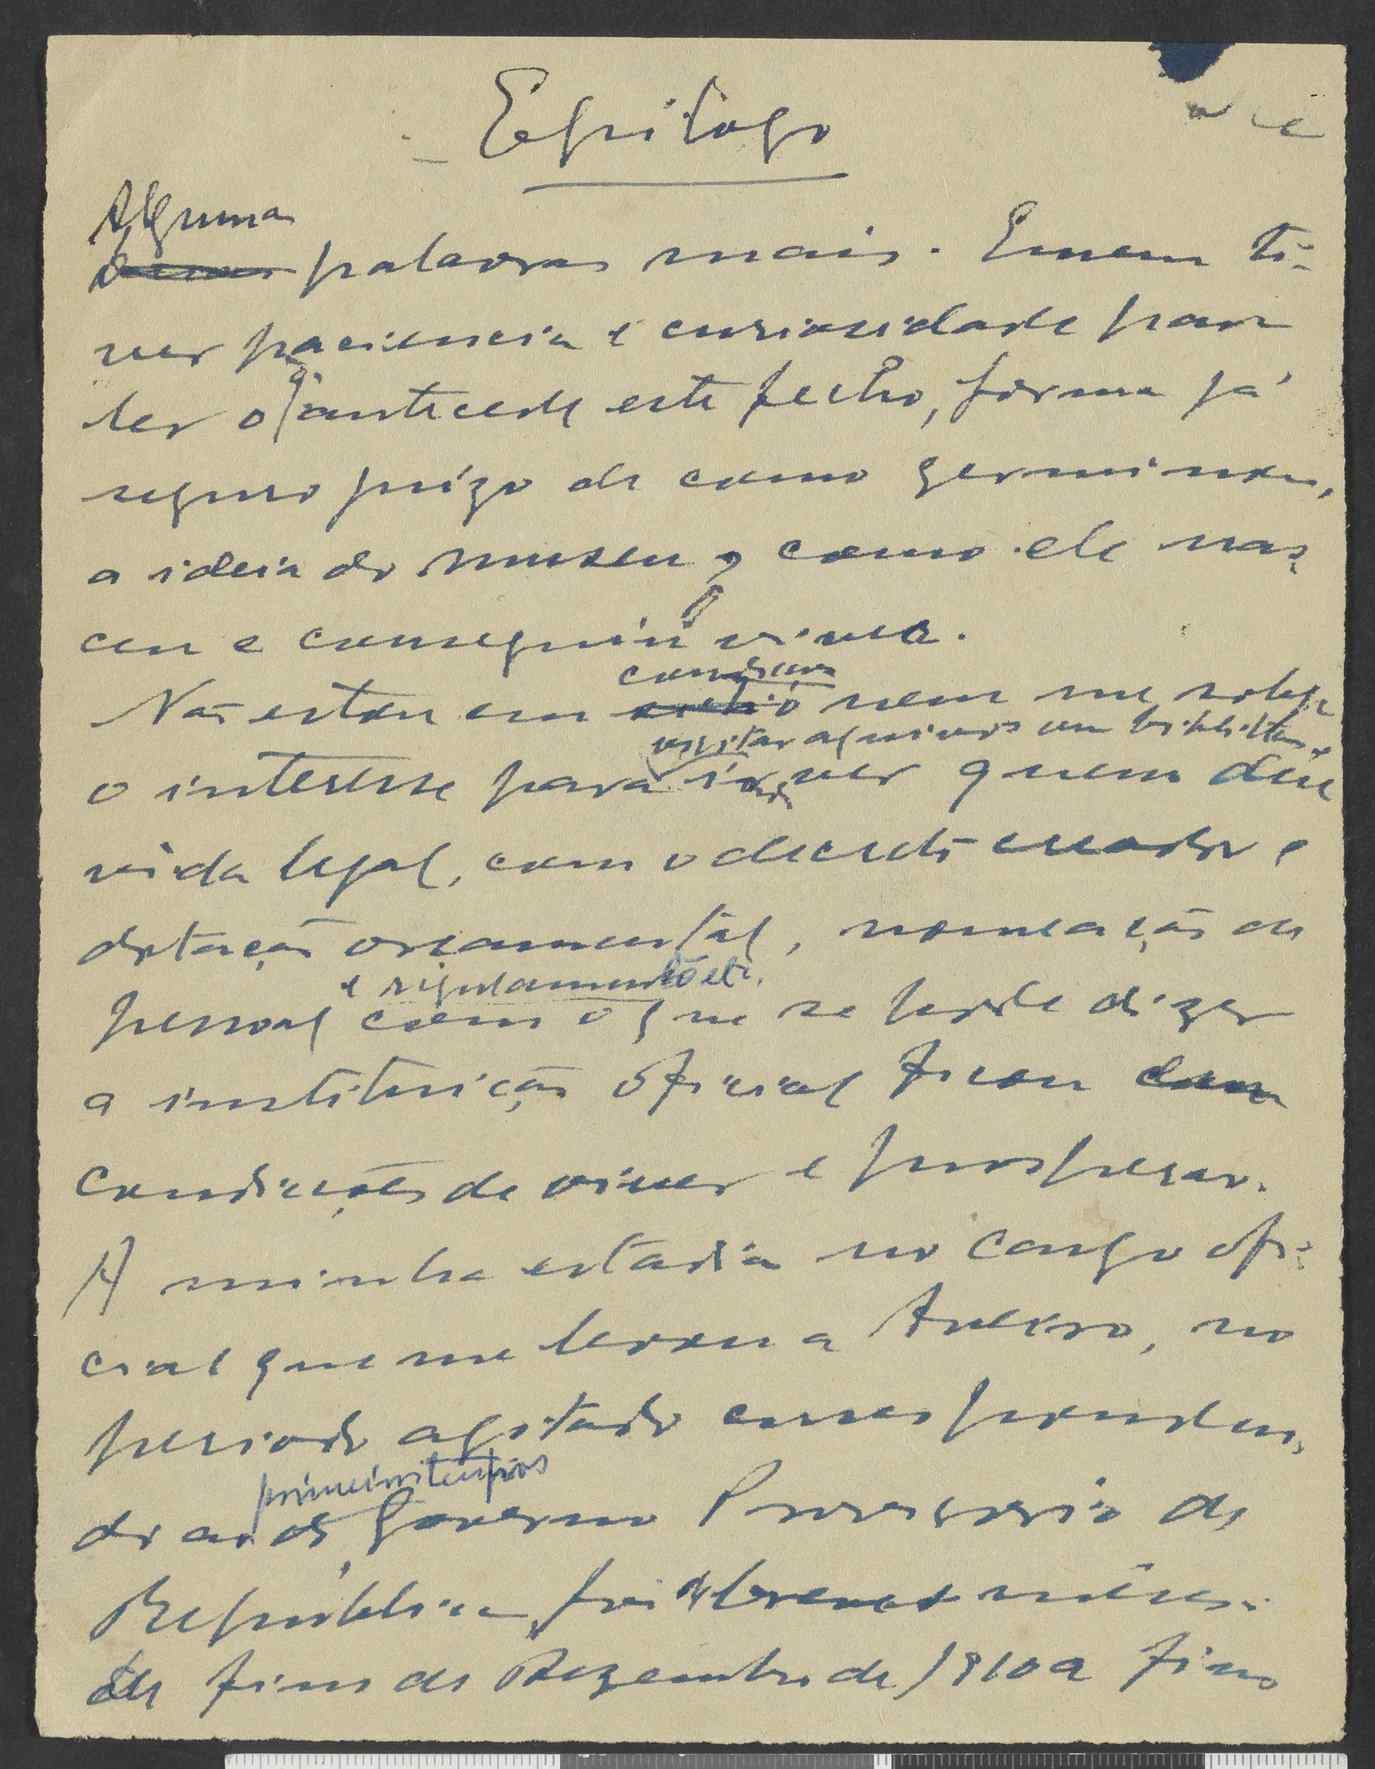 Epílogo
Algumas
palavras mais. Quem ti-
ver paciencia e curiosidade para
ler o q antecede este fecho, forma já
seguro juízo de como germinou,
a ideia do museu, como ele nas-
ceu e conseguiu viver.
condições
Não estou em nem me sobra
visitar arquivos ou bibliotecas
o interesse para ver quem deu
vida legal, com o decreto creador e
dotação orçamental, nomeação de
e regulamento etc.
pessoal com o que se pode dizer
a instituição oficial ficou com
condições de viver e prosperar.
A minha estadia no cargo ofi-
cial que me levou a Aveiro, no
periodo agitado corresponden-
primeiros tempos
do aos do Governo Provisorio da
República, foi de breves mêses.
de fins de Dezembro de 1910 a fins